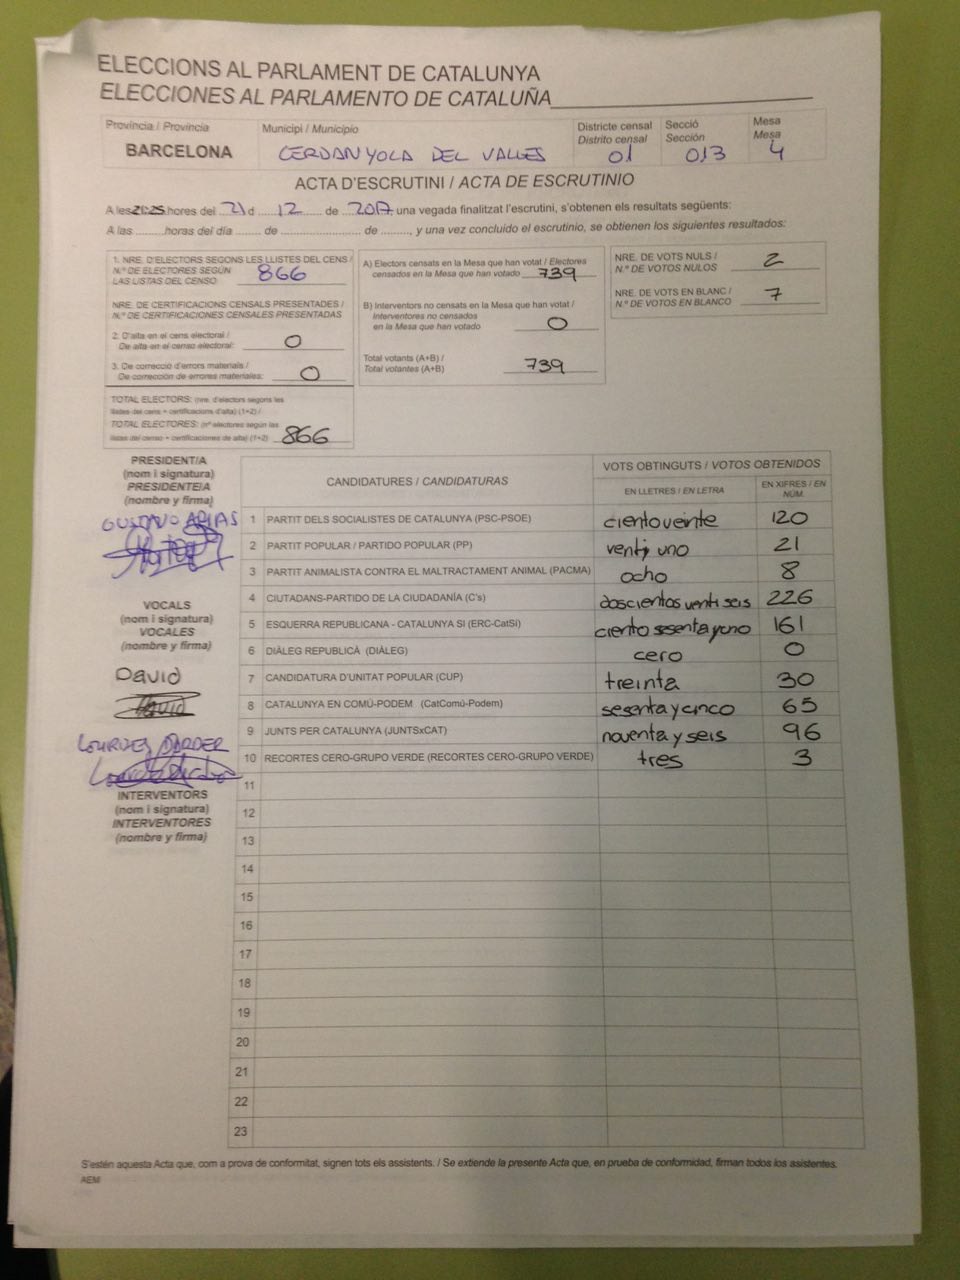 ELECCIONS AL PARLAMENT DE CATALUNYA
ELECCIONES AL PARLAMENTO DE CATALUÑA
Província / Provincia
BARCELONA
Municipi / Municipio
CERDANYOLA DEL VALLES
Districte censal
Distrito censal
01
Secció
Sección
013
Mesa
Mesa
4
ACTA D'ESCRUTINI / ACTA DE ESCRUTINIO
A les 21:25 hores del 21 d 12 de 2017 una vegada finalitzat l'escrutini, s'obtenen els resultats següents:
A las ..........horas del día .......... de .......................... de .........., y una vez concluido el escrutinio, se obtienen los siguientes resultados:
1. NRE. D'ELECTORS SEGONS LES LLISTES DEL CENS /
N.º DE ELECTORES SEGÚN
LAS LISTAS DEL CENSO
866
NRE. DE CERTIFICACIONS CENSALS PRESENTADES /
N.º DE CERTIFICACIONES CENSALES PRESENTADAS
2. D'alta en el cens electoral /
De alta en el censo electoral: 0
3. De correcció d'errors materials /
De corrección de errores materiales: 0
TOTAL ELECTORS: (nre. d'electors segons les
llistes del cens + certificacions d'alta) (1+2) /
TOTAL ELECTORES: (nº electores según las
listas del censo + certificaciones de alta) (1+2) 866
A) Electors censats en la Mesa que han votat / Electores
censados en la Mesa que han votado 739
B) Interventors no censats en la Mesa que han votat /
Interventores no censados
en la Mesa que han votado 0
Total votants (A+B) /
Total votantes (A+B) 739
NRE. DE VOTS NULS /
N.º DE VOTOS NULOS 2
NRE. DE VOTS EN BLANC /
N.º DE VOTOS EN BLANCO 7
PRESIDENT/A
(nom i signatura)
PRESIDENTE/A
(nombre y firma)
GUSTAVO ARIAS
VOCALS
(nom i signatura)
VOCALES
(nombre y firma)
David
David
LOURDES DARDER
INTERVENTORS
(nom i signatura)
INTERVENTORES
(nombre y firma)
CANDIDATURES / CANDIDATURAS
VOTS OBTINGUTS / VOTOS OBTENIDOS
EN LLETRES / EN LETRA
EN XIFRES / EN NÚM.
1 PARTIT DELS SOCIALISTES DE CATALUNYA (PSC-PSOE) ciento veinte 120
2 PARTIT POPULAR / PARTIDO POPULAR (PP) venti uno 21
3 PARTIT ANIMALISTA CONTRA EL MALTRACTAMENT ANIMAL (PACMA) ocho 8
4 CIUTADANS-PARTIDO DE LA CIUDADANÍA (C's) doscientos venti seis 226
5 ESQUERRA REPUBLICANA - CATALUNYA SI (ERC-CatSi) ciento sesenta y uno 161
6 DIÀLEG REPUBLICÀ (DIÀLEG) cero 0
7 CANDIDATURA D'UNITAT POPULAR (CUP) treinta 30
8 CATALUNYA EN COMÚ-PODEM (CatComú-Podem) sesenta y cinco 65
9 JUNTS PER CATALUNYA (JUNTSxCAT) noventa y seis 96
10 RECORTES CERO-GRUPO VERDE (RECORTES CERO-GRUPO VERDE) tres 3
11
12
13
14
15
16
17
18
19
20
21
22
23
S'estén aquesta Acta que, com a prova de conformitat, signen tots els assistents. / Se extiende la presente Acta que, en prueba de conformidad, firman todos los asistentes.
AEM